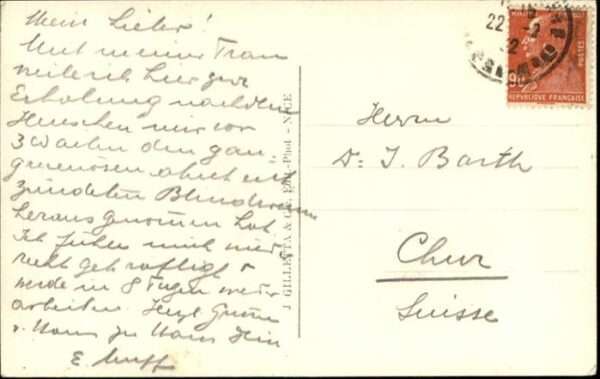 Mein Lieber!
Mit meiner Frau
weile ich hier zur
Erholung nachdem
Henschen mir vor
3 Wochen den gan-
grenösen akut ent-
zündeten Blinddarm
herausgenommen hat.
Ich fühle mich wieder
recht gekräftigt &
werde in 8 Tagen wieder
arbeiten. Herzl. Grüsse
v. Haus zu Haus Dein
E.
J. GILLETTA & Cie, Edit.-Phot - NICE
22
-2
32
POSTES
90c
REPUBLIQUE FRANÇAISE
Herrn
Dr. J. Barth
Chur
Suisse